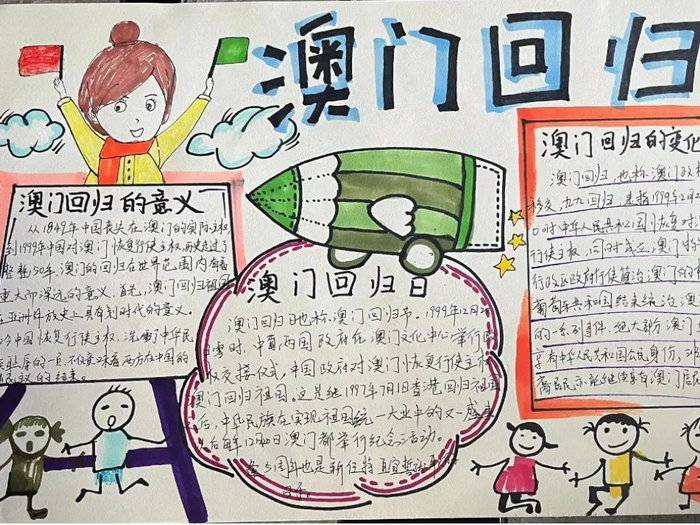 澳门回归
澳门回归的意义
从1849年中国丧失在澳门的实际主权
到1999年中国对澳门恢复行使主权,历史走过了
整整150年,澳门的回归在世界范围内有着
重大而深远的意义。首先,澳门回归祖国
在亚洲解放史上具有划时代的意义。
中国恢复行使主权,洗雪了中华民
族
的一
不仅意味着西方在中国的
的结束。
澳门回归日
澳门回归日也称,澳门回归节。1999年12月20
日零时,中葡两国政府在澳门文化中心举行
权交接仪式,中国政府对澳门恢复行使主权
澳门回归祖国。这是继1997年7月1日香港回归祖国
后,中华民族在实现祖国统一大业中的又一盛事
后每年12月20日澳门都举行纪念活动。
5周年也是新任特
澳门回归的变化
澳门回归,也称澳门政权
移交,九九回归,是指1999年12月20
0时中华人民共和国恢复对澳门
行使主权,同时成立澳门特
行政区政府行使管治澳门的
葡萄牙共和国结束统治澳门
的一系列事件,绝大部分澳门
享有中华人民共和国公民身份,
居民亦能继续享有澳门居